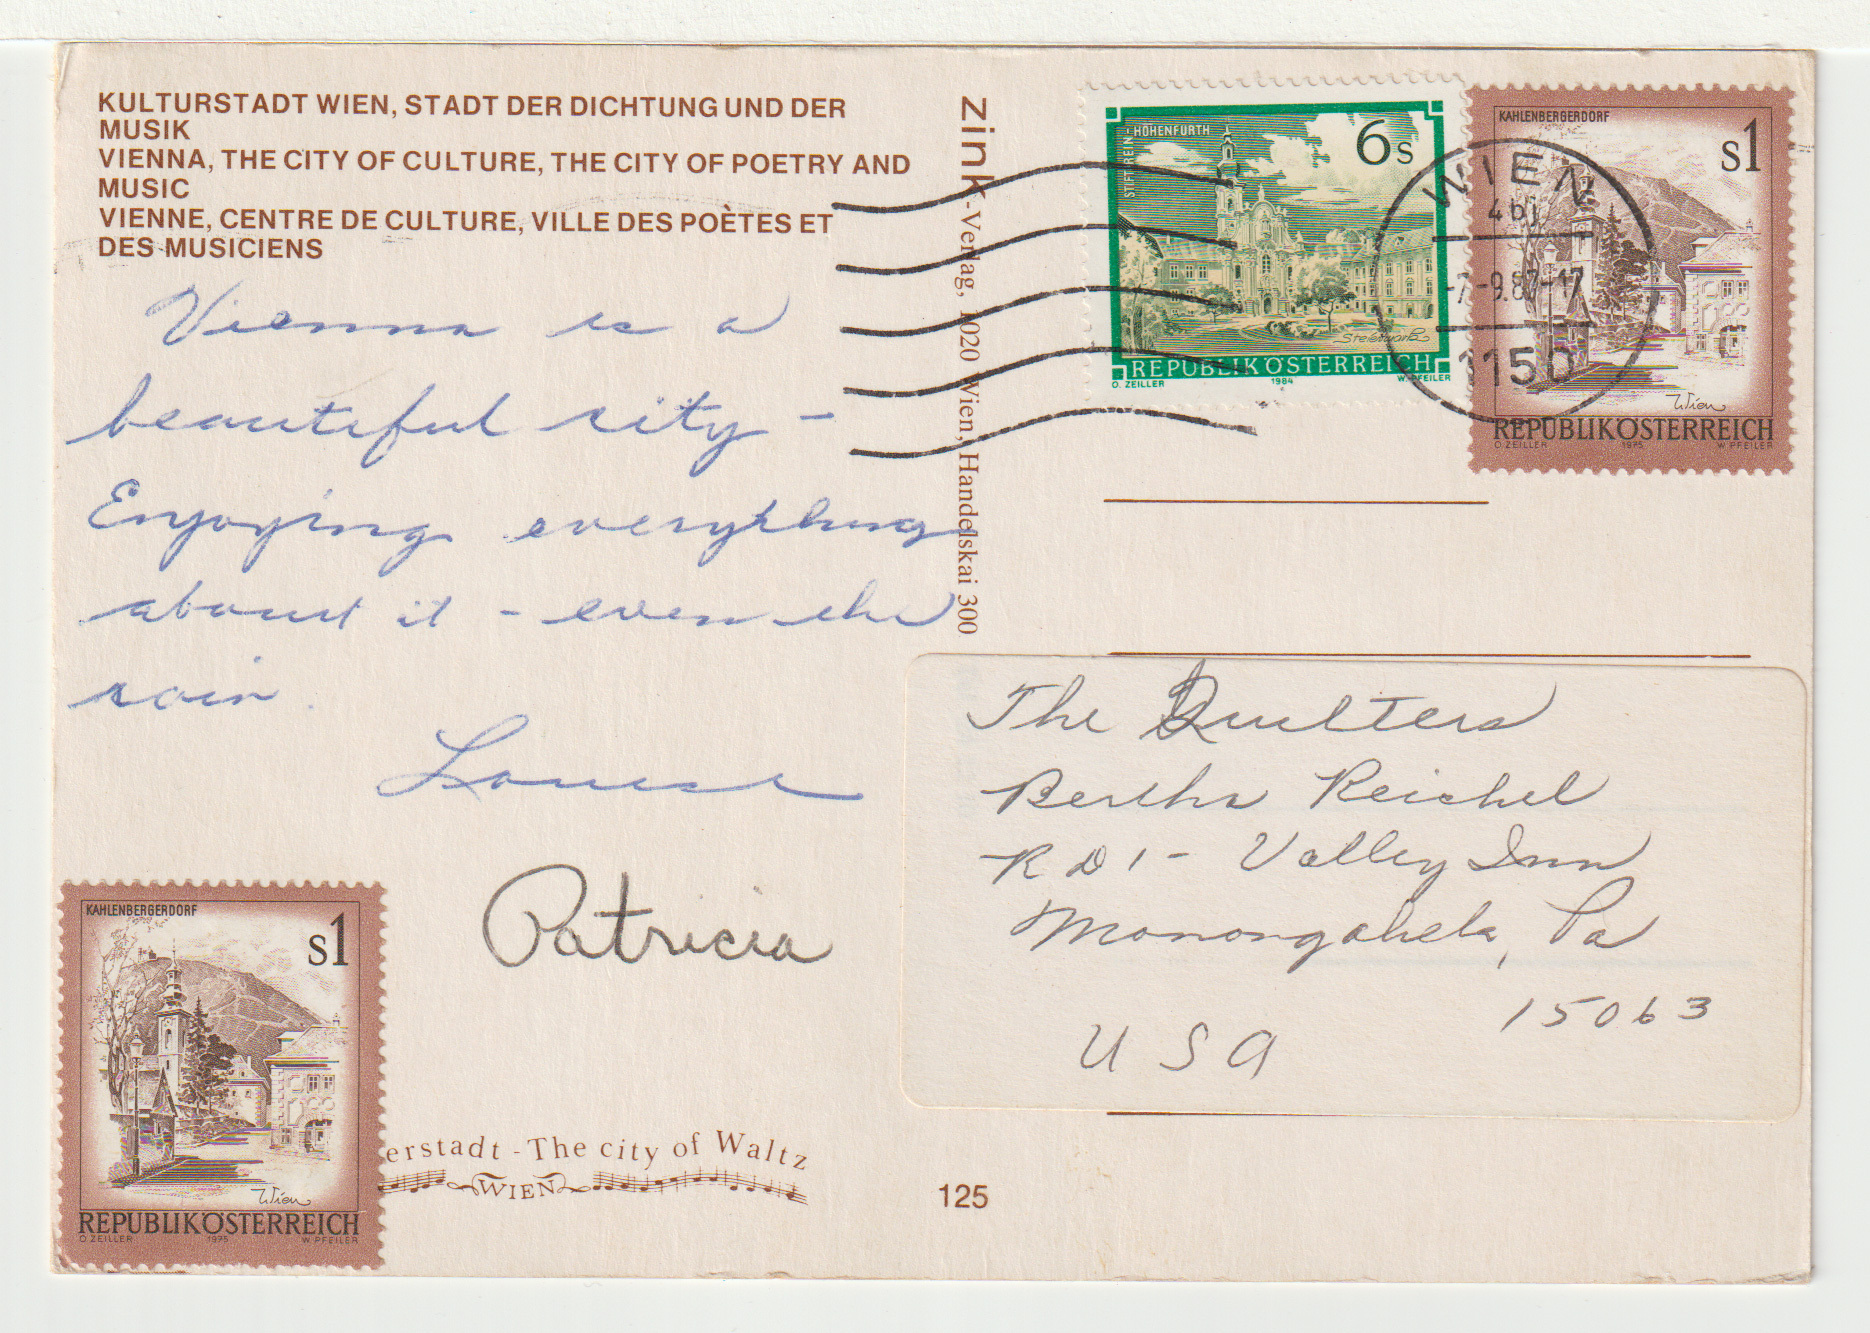 KULTURSTADT WIEN, STADT DER DICHTUNG UND DER
MUSIK
VIENNA, THE CITY OF CULTURE, THE CITY OF POETRY AND
MUSIC
VIENNE, CENTRE DE CULTURE, VILLE DES POÈTES ET
DES MUSICIENS
Vienna is a
beautiful city -
Enjoying everything
about it - even the
rain.
Louise
Patricia
KAHLENBERGERDORF
s1
Wien
REPUBLIK ÖSTERREICH
O. ZEILLER 1975 W. PFEILER
erstadt - The city of Waltz
WIEN
125
zink-Verlag, 1020 Wien, Handelskai 300
STIFT REIN-HOHENFURTH
6s
Steiermark
REPUBLIK ÖSTERREICH
O. ZEILLER 1984 W. PFEILER
KAHLENBERGERDORF
s1
Wien
REPUBLIK ÖSTERREICH
O. ZEILLER 1975 W. PFEILER
WIEN
-7.-9.87-17
1150
The Quilters
Bertha Reichel
R D 1 - Valley Inn
Monongahela, Pa
15063
USA